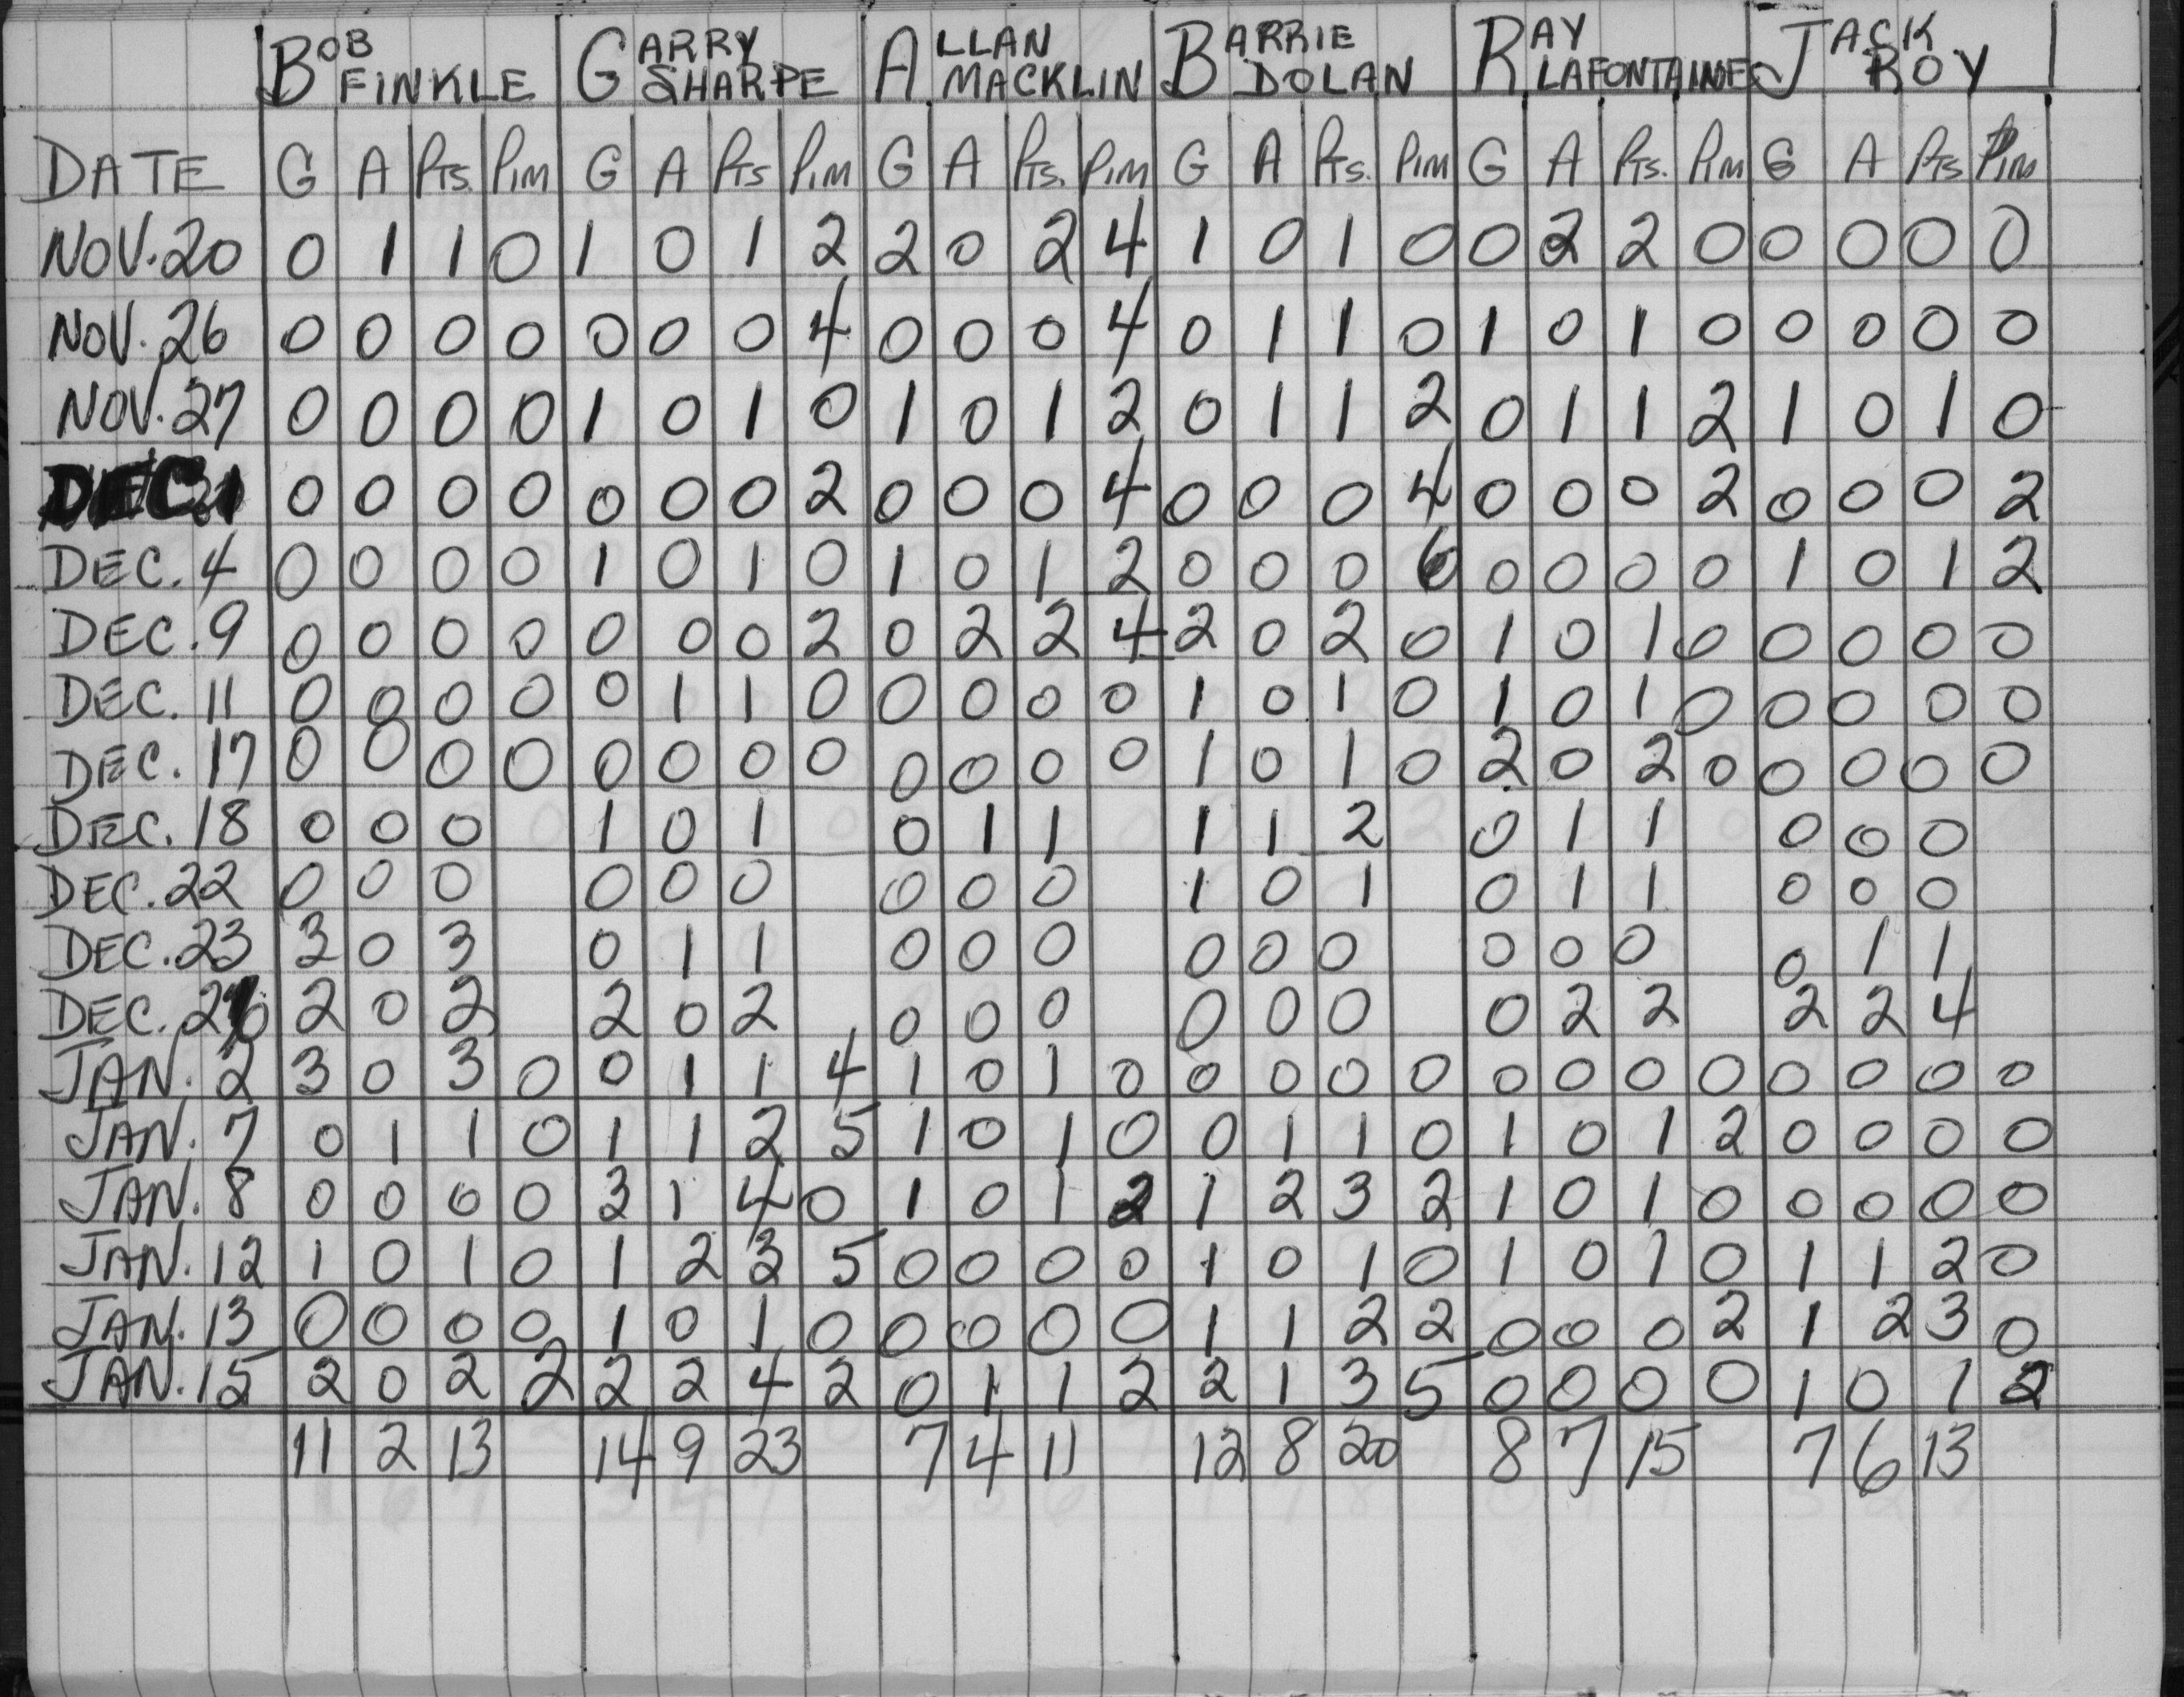 BOB FINKLE GARRY SHARPE ALLAN MACKLIN BARRIE DOLAN RAY LAFONTAINE JACK ROY
DATE G A Pts. Pim G A Pts Pim G A Pts. Pim G A Pts. Pim G A Pts. Pim G A Pts Pim
NOV. 20 0 1 1 0 1 0 1 2 2 0 2 4 1 0 1 0 0 2 2 0 0 0 0 0
NOV. 26 0 0 0 0 0 0 0 4 0 0 0 4 0 1 1 0 1 0 1 0 0 0 0 0
NOV. 27 0 0 0 0 1 0 1 0 1 0 1 2 0 1 1 2 0 1 1 2 1 0 1 0
DEC. 1 0 0 0 0 0 0 0 2 0 0 0 4 0 0 0 4 0 0 0 2 0 0 0 2
DEC. 4 0 0 0 0 1 0 1 0 1 0 1 2 0 0 0 6 0 0 0 0 1 0 1 2
DEC. 9 0 0 0 0 0 0 0 2 0 2 2 4 2 0 2 0 1 0 1 0 0 0 0 0
DEC. 11 0 0 0 0 0 1 1 0 0 0 0 0 1 0 1 0 1 0 1 0 0 0 0 0
DEC. 17 0 0 0 0 0 0 0 0 0 0 0 0 1 0 1 0 2 0 2 0 0 0 0 0
DEC. 18 0 0 0 1 0 1 0 1 1 1 1 2 0 1 1 0 0 0
DEC. 22 0 0 0 0 0 0 0 0 0 1 0 1 0 1 1 0 0 0
DEC. 23 3 0 3 0 1 1 0 0 0 0 0 0 0 0 0 0 1 1
DEC. 26 2 0 2 2 0 2 0 0 0 0 0 0 0 2 2 2 2 4
JAN. 2 3 0 3 0 0 1 1 4 1 0 1 0 0 0 0 0 0 0 0 0 0 0 0 0
JAN. 7 0 1 1 0 1 1 2 5 1 0 1 0 0 1 1 0 1 0 1 2 0 0 0 0
JAN. 8 0 0 0 0 3 1 4 0 1 0 1 2 1 2 3 2 1 0 1 0 0 0 0 0
JAN. 12 1 0 1 0 1 2 3 5 0 0 0 0 1 0 1 0 1 0 1 0 1 1 2 0
JAN. 13 0 0 0 0 1 0 1 0 0 0 0 0 1 1 2 2 0 0 0 2 1 2 3 0
JAN. 15 2 0 2 2 2 2 4 2 0 1 1 2 2 1 3 5 0 0 0 0 1 0 1 2
11 2 13 14 9 23 7 4 11 12 8 20 8 7 15 7 6 13